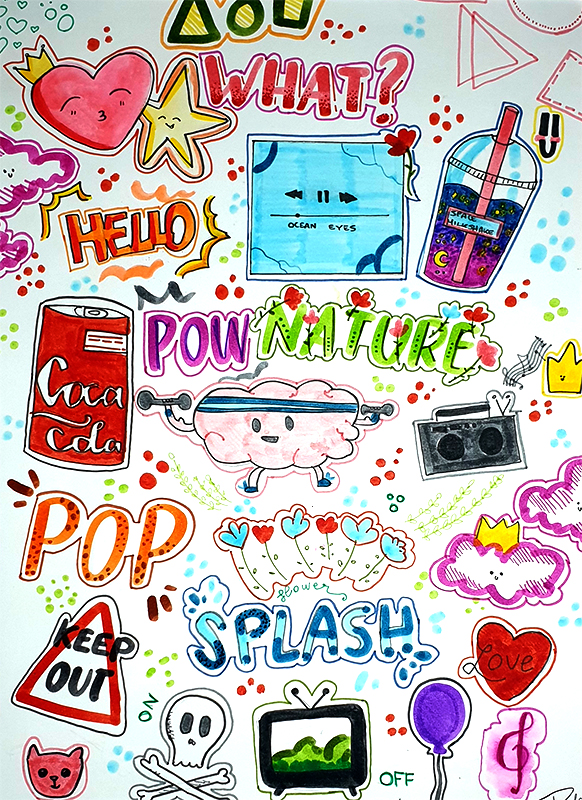 YOU
WHAT?
HELLO
OCEAN EYES
SPACE
MILKSHAKE
POW
NATURE
Coca
Cola
POP
flower
SPLASH
KEEP
OUT
Love
ON
OFF